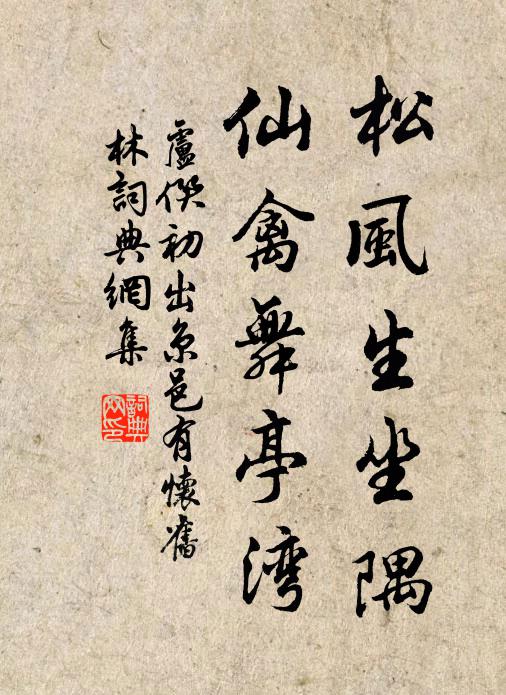 松風生坐隅
仙禽舞亭湾
盧僎初出京邑有懷舊
林詞典網集
詞典
网印